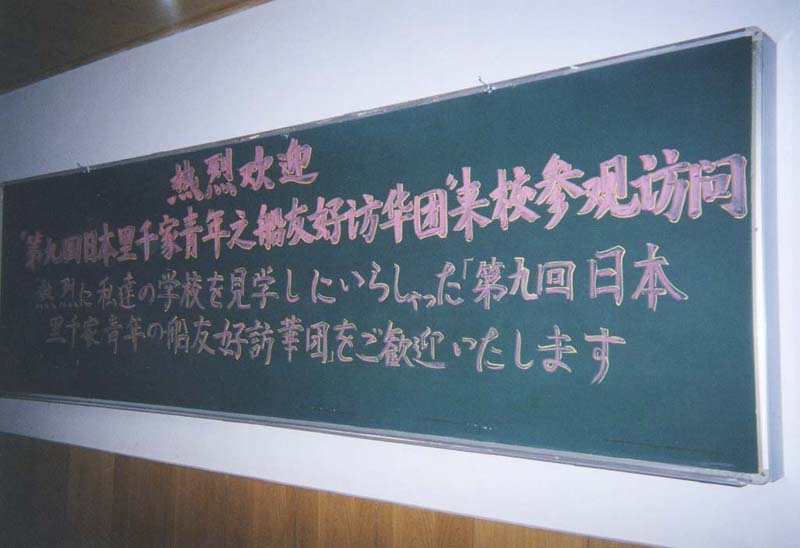 热烈欢迎
“第九回日本里千家青年之船友好访华团”来校参观访问
熱烈に私達の学校を見学しにいらしゃった「第九回日本
里千家青年の船友好訪華団」をご歓迎いたします